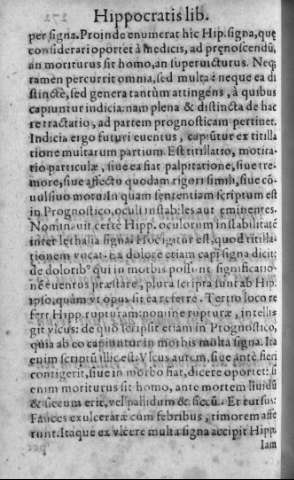 Hippocratis lib.
per signa. Proinde enumerat hic Hip. signa, quę
considerari oportet à medicis, ad pręnoscendũ,
an moriturus sit homo, an superuicturus. Neq;
tamen percurrit omnia, sed multa è neque ea di
stinctè, sed genera tantùm attingens, à quibus
capiuntur indicia: nam plena & distincta de hac
re tractatio, ad partem prognosticam pertinet.
Indicia ergo futuri euentus, capiũtur ex titilla
tione multarum partium. Est titillatio, motita-
tio particulæ, siue ea fiat palpitatione, siue tre-
more, siue affectu quodam rigori simili, siue cõ-
uulsiuo motu. In quam sententiam scriptum est
in Prognostico, oculi instabiles aut eminentes.
Nominauit certè Hipp. oculorum instabilitatẽ
inter lethalia signa. Hoc igitur est, quod titilla-
tionem vocat. na dolore etiam capi signa dicit:
de dolorib⁹ qui in morbis possunt significatio-
nẽ euentus præstare, plura scripta sunt ab Hip.
ipso, quàm vt opus sit ea referre. Tertio loco re
fert Hipp. rupturam: nomine rupturæ, intelli-
git vlcus: de quo scripsit etiam in Prognostico,
quia ab eo capiuntur in morbis multa signa. Ita
enim scriptũ illic est: Vlcus autem, siue antè fieri
contigerit, siue in morbo fiat, dicere oportet: si
enim moriturus sit homo, ante mortem liuidũ
& siccum erit, vel pallidum & siccũ. Et rursus:
Fauces exulceratæ cum febribus, timorem affe
runt. Itaque ex vlcere multa signa accipit Hipp.
Iam